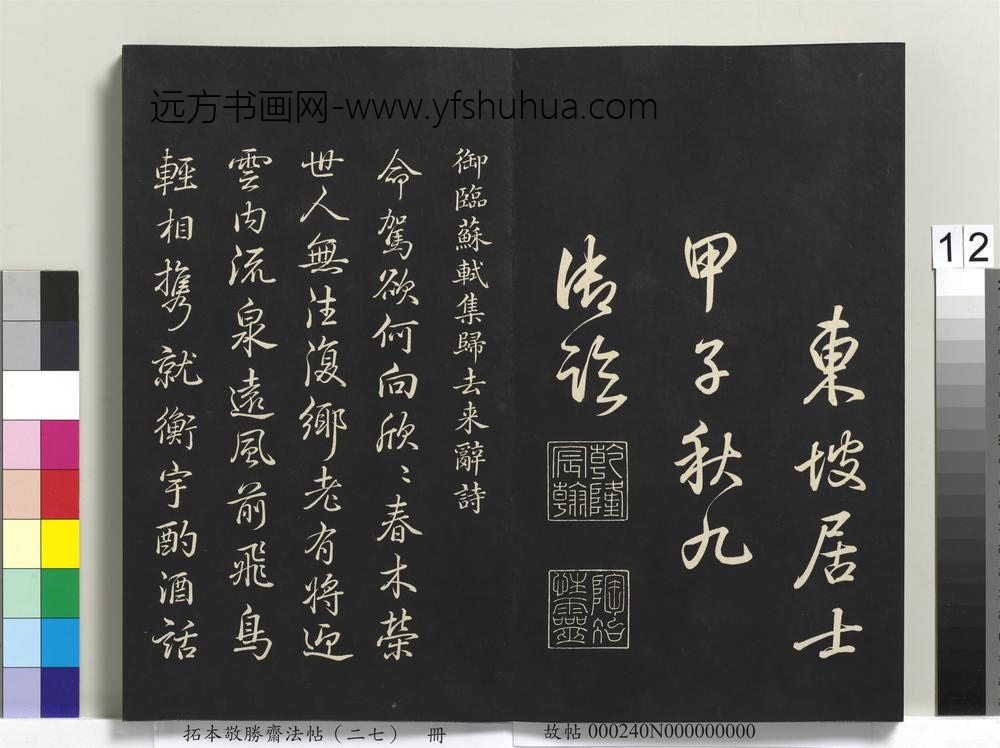 远方书画网-www.yfshuhua.com
東坡居士
甲子秋九
御臨
乾隆宸翰
陶冶性靈
御臨蘇軾集歸去来辭詩
命駕欲何向欣〻春木榮
世人無往復鄉老有將迎
雲内流泉遠風前飛鳥
輕相携就衡宇酌酒話
12
拓本敬勝齋法帖（二七） 冊
故帖 000240N000000000